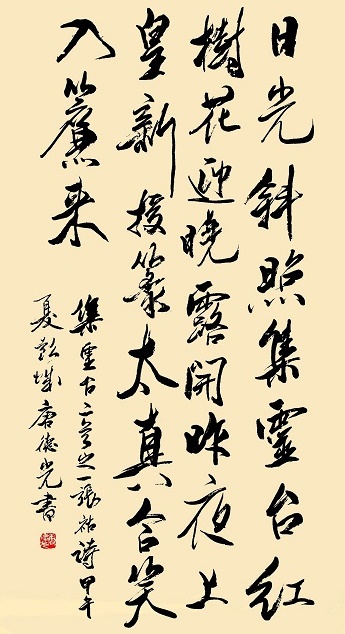 日光斜照集靈台紅
樹花迎曉露開昨夜上
皇新授箓太真含笑
入簾来
集靈台二首之一張祜詩甲午
夏彭城唐德光書